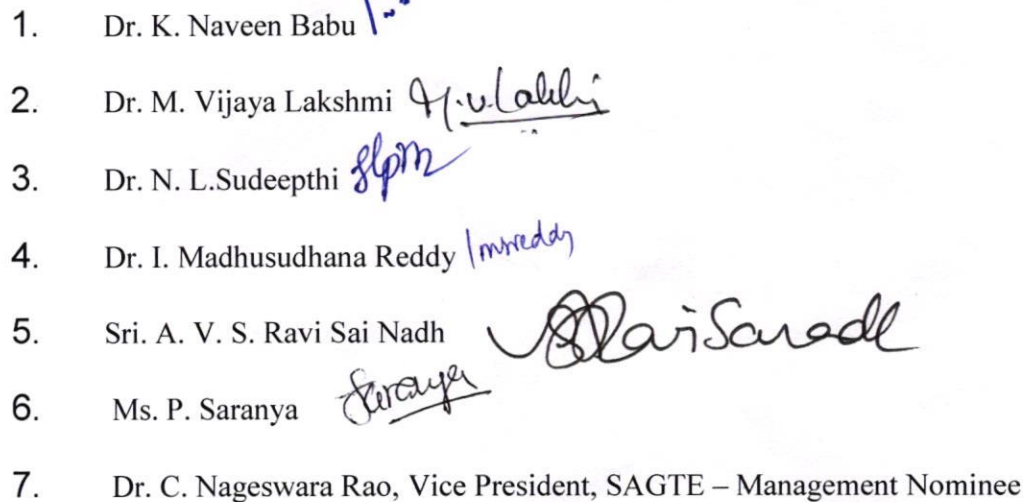 1. Dr. K. Naveen Babu
2. Dr. M. Vijaya Lakshmi M.V.Lakshmi
3. Dr. N. L.Sudeepthi
4. Dr. I. Madhusudhana Reddy Imsreddy
5. Sri. A. V. S. Ravi Sai Nadh
6. Ms. P. Saranya Saranya
7. Dr. C. Nageswara Rao, Vice President, SAGTE – Management Nominee